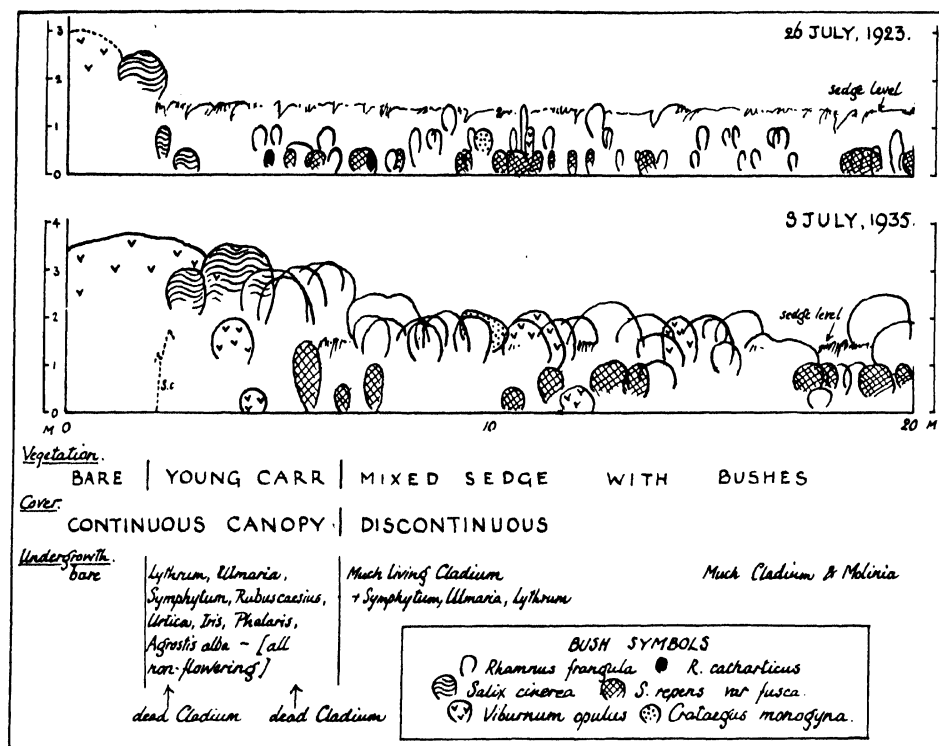 26 JULY, 1923.
3
2
1
0
sedge level
3 JULY, 1935.
4
3
2
1
0
sedge level
S.c
M 0 10 20 M
Vegetation.
BARE | YOUNG CARR | MIXED SEDGE WITH BUSHES
Cover.
CONTINUOUS CANOPY | DISCONTINUOUS
Undergrowth.
bare
Lythrum, Ulmaria,
Symphytum, Rubus caesius,
Urtica, Iris, Phalaris,
Agrostis alba - [all
non-flowering]
Much living Cladium
+ Symphytum, Ulmaria, Lythrum
Much Cladium & Molinia
dead Cladium dead Cladium
BUSH SYMBOLS
Rhamnus frangula R. catharticus
Salix cinerea S. repens var fusca.
Viburnum opulus Crataegus monogyna.